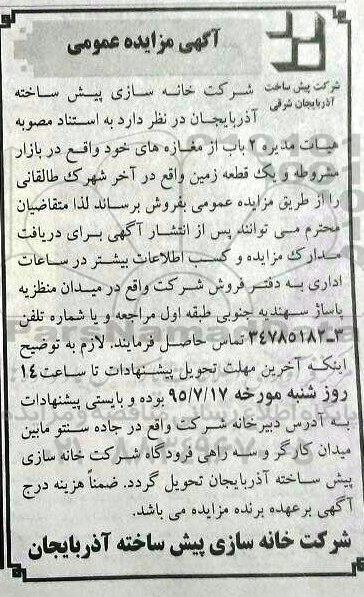 آگهی مزایده عمومی
شرکت پیش ساخت
آذربایجان شرقی
شرکت خانه سازی پیش ساخته
آذربایجان در نظر دارد به استناد مصوبه
هیات مدیره ۲ باب از مغازه های خود واقع در بازار
مشروطه و یک قطعه زمین واقع در آخر شهرک طالقانی
را از طریق مزایده عمومی بفروش برساند لذا متقاضیان
محترم می توانند پس از انتشار آگهی برای دریافت
مدارک مزایده و کسب اطلاعات بیشتر در ساعات
اداری به دفتر فروش شرکت واقع در میدان منظریه
پاساژ سهندیه جنوبی طبقه اول مراجعه و یا شماره تلفن
۳-۳۴۷۸۵۱۸۲ تماس حاصل فرمایند. لازم به توضیح
اینکه آخرین مهلت تحویل پیشنهادات تا ساعت ۱۴
روز شنبه مورخه ۹۵/۷/۱۷ بوده و بایستی پیشنهادات
به آدرس دبیرخانه شرکت واقع در جاده سنتو مابین
میدان کارگر و سه راهی فرودگاه شرکت خانه سازی
پیش ساخته آذربایجان تحویل گردد. ضمناً هزینه درج
آگهی برعهده برنده مزایده می باشد.
شرکت خانه سازی پیش ساخته آذربایجان